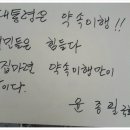 대통령은 약속이행!!
민들은 힘들다
집마련 약속이행만이
이다.
윤종필